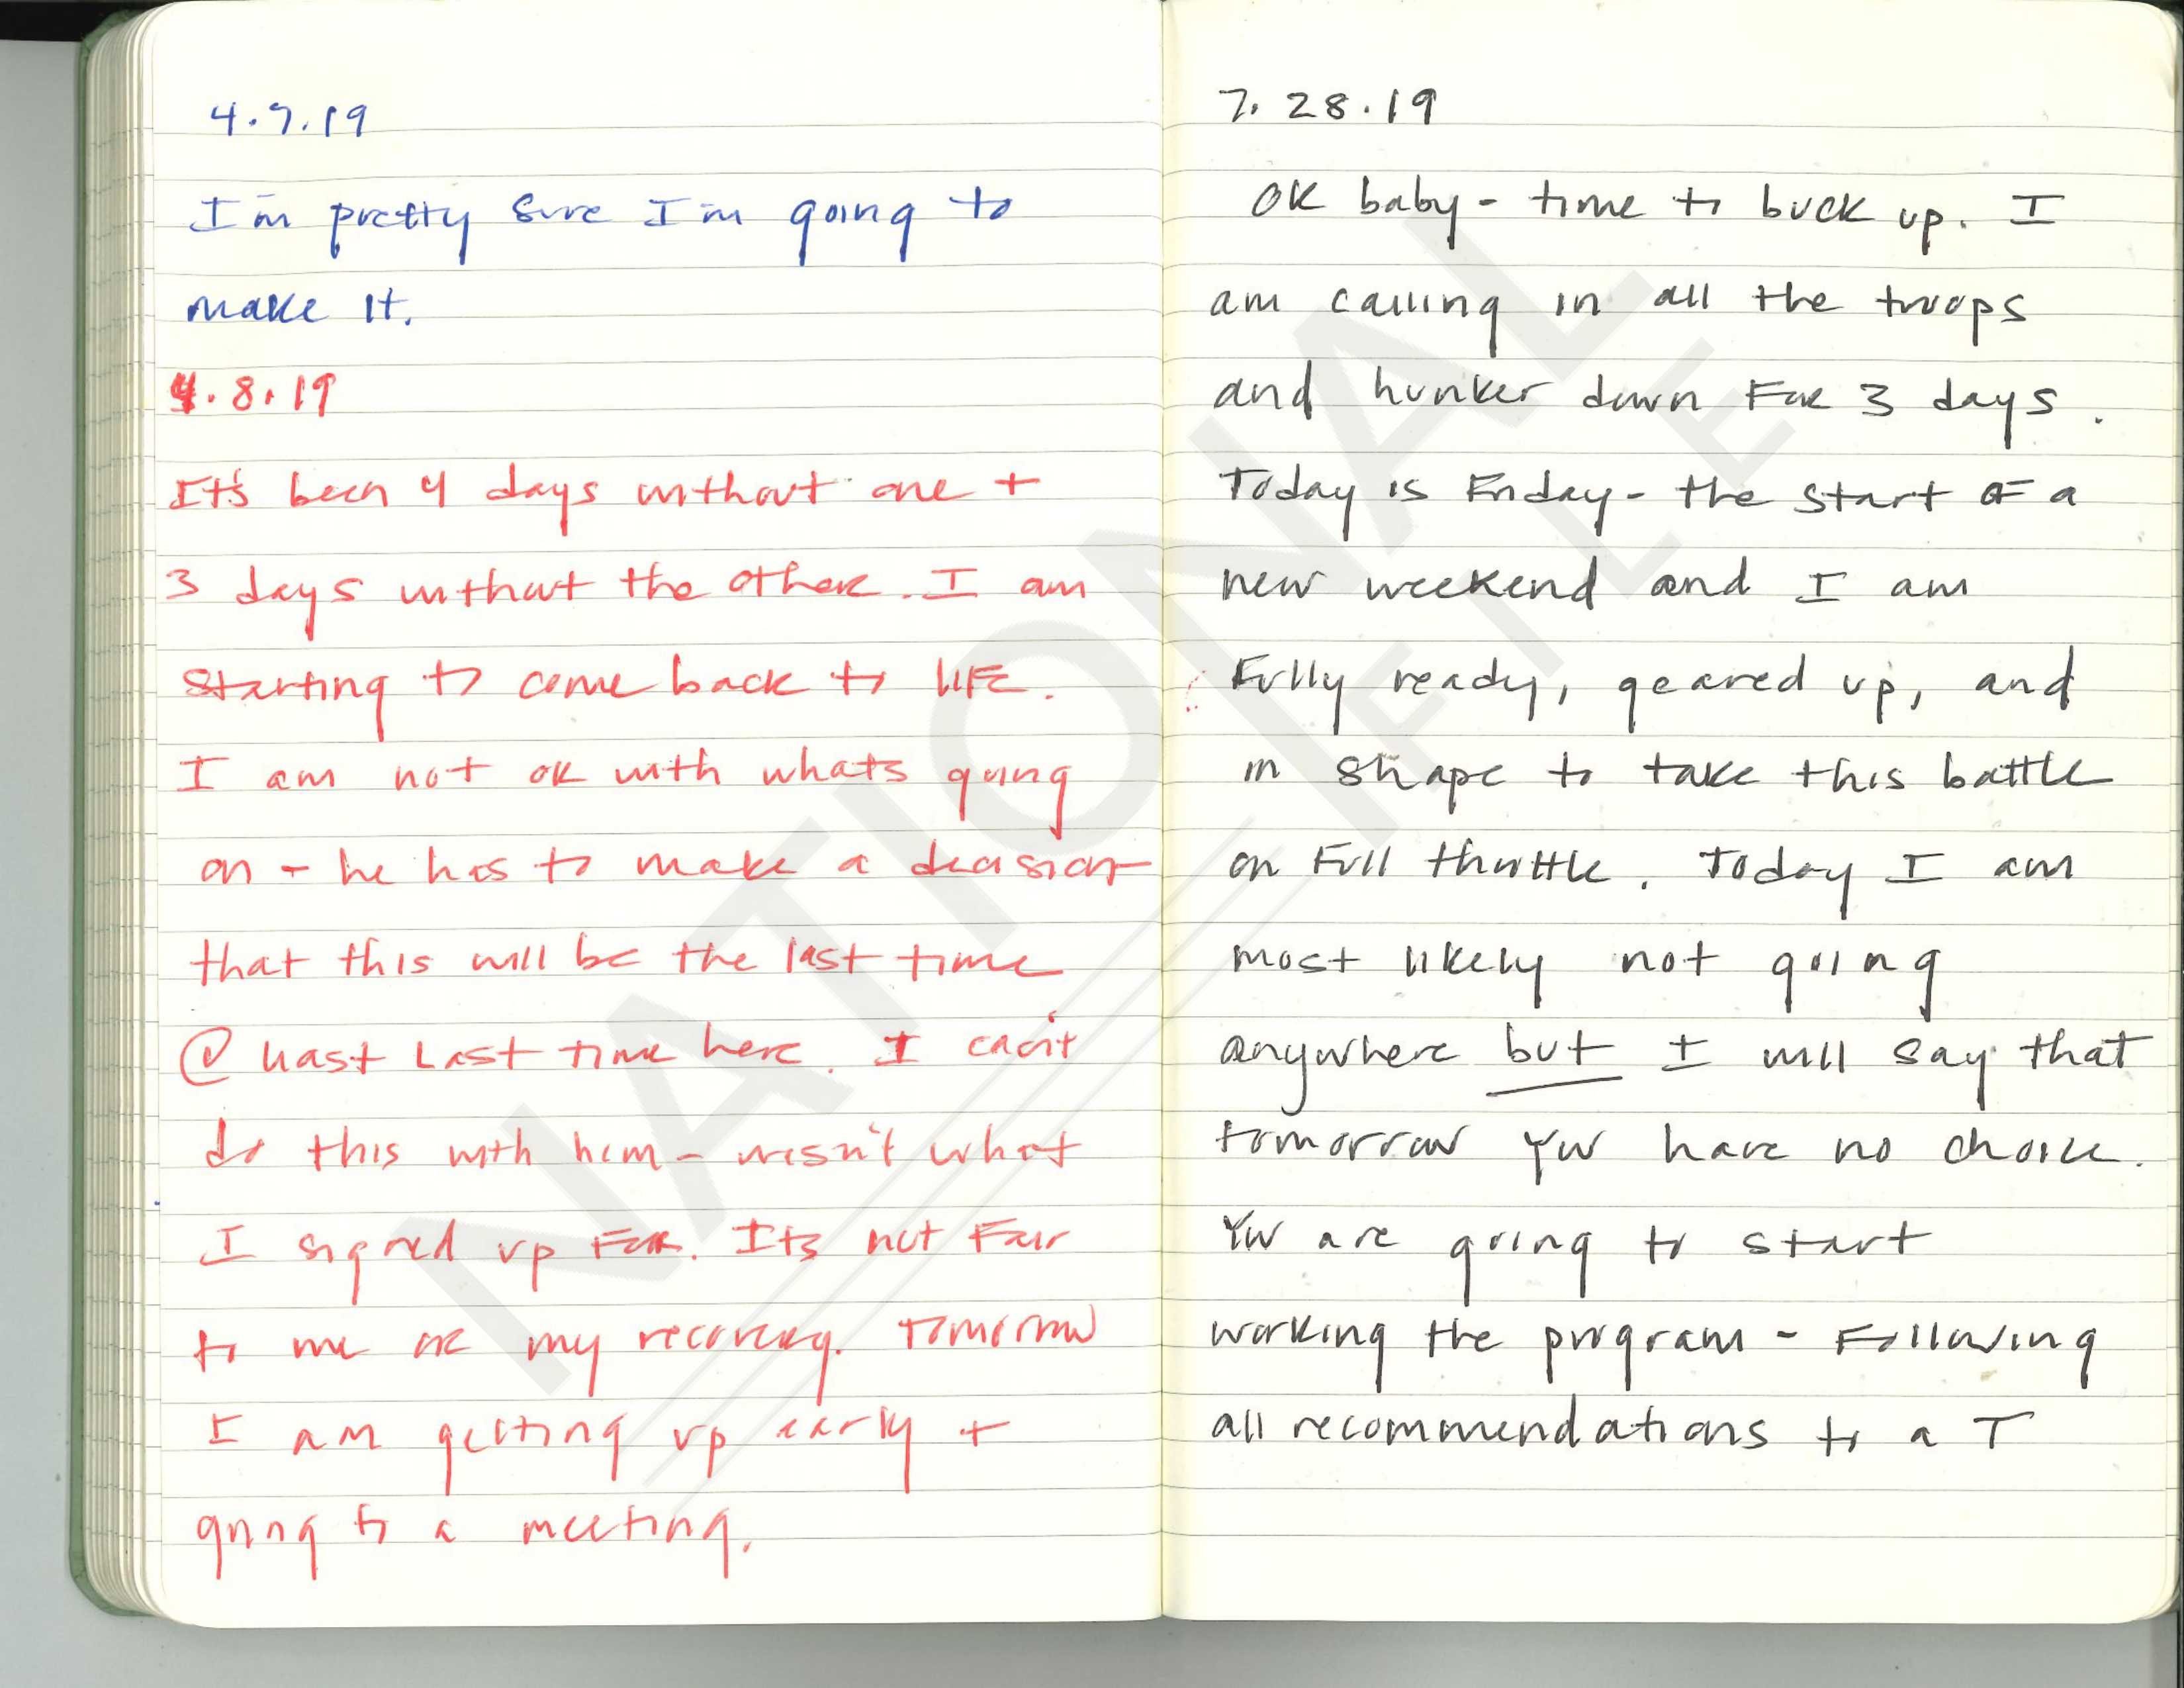 4.7.19
I'm pretty sure I'm going to
make it.
4.8.19
It's been 4 days without one +
3 days without the other. I am
starting to come back to life.
I am not ok with whats going
on - he has to make a decision
that this will be the last time
@ least Last time here. I can't
do this with him - wasn't what
I signed up for. Its not fair
to me or my recovery. Tomorrow
I am getting up early +
going to a meeting.
7.28.19
OK baby - time to buck up. I
am calling in all the troops
and hunker down for 3 days.
Today is Friday - the start of a
new weekend and I am
fully ready, geared up, and
in shape to take this battle
on full throttle. Today I am
most likely not going
anywhere but I will say that
tomorrow you have no choice.
You are going to start
working the program - following
all recommendations to a T
NATIONAL
FILE